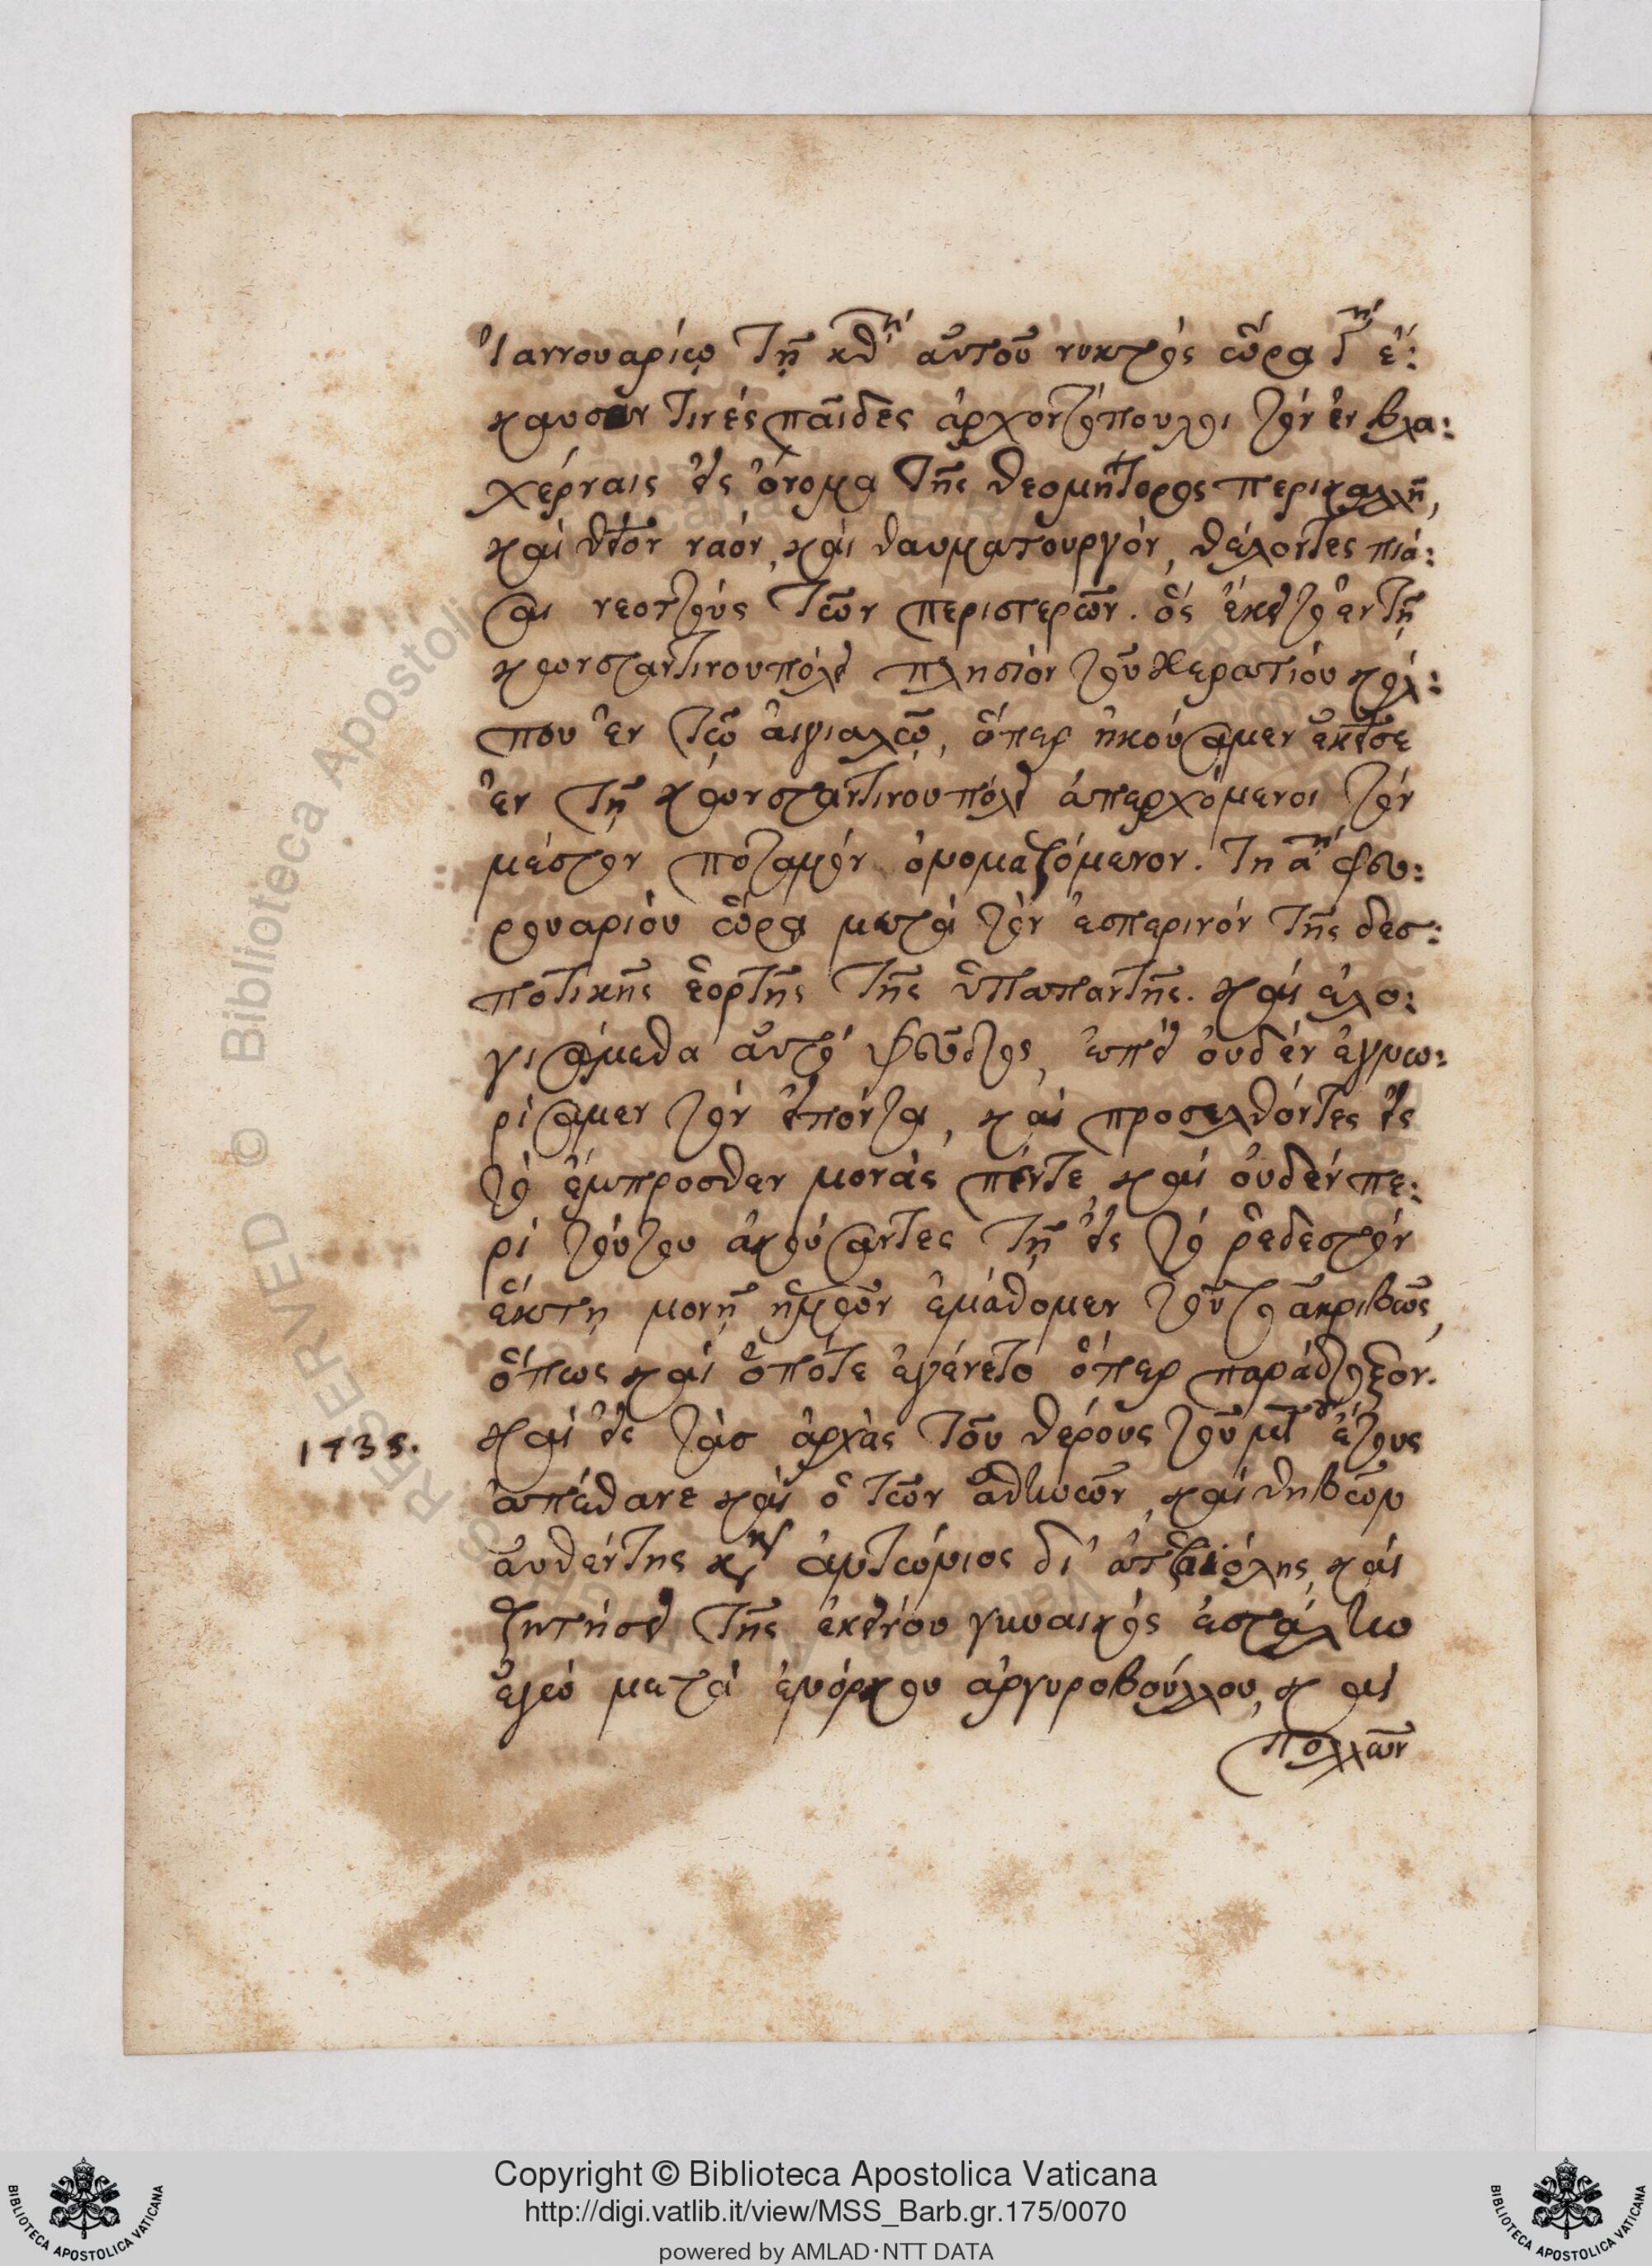 Ἰαννουαρίῳ τῇ κθ῍ῃ αὐτοῦ νυκτὸς ὥρα γ῍ῃ ἔ:
καυσαν τινές παῖδες ἀρχοντόπουλοι τὸν ἐν βλα:
χέρναις εἰς ὄνομα τῆς θεομήτορος περικαλλῆ,
καὶ θεῖον ναόν, καὶ θαυματουργόν, θέλοντες πιά:
σαι νεοττοὺς τῶν περιστερῶν. ὃς ἔκειτο ἐν τῇ
κωνσταντινουπόλει πλησίον τοῦ Κερατίου κόλ:
που ἐν τῷ αἰγιαλῷ, ὅπερ ἠκούσαμεν ἐκεῖσε
ἐν τῇ κωνσταντινουπόλει ἀπερχόμενοι τὸν
μέστον ποταμόν ὀνομαζόμενον. τῇ α῍ῃ φευ:
ρουαρίου ὥρα μετὰ τὸν ἑσπερινόν τῆς δεσ:
ποτικῆς ἑορτῆς τῆς ὑπαπαντῆς. καὶ ἐλο:
γισάμεθα αὐτό ψεῦδος, ἐπεὶ οὐδέν ἐγνω:
ρίσαμεν τὸν εἰπόντα, καὶ προσελθόντες εἰς
τὸ ἔμπροσθεν μονὰς πέντε, καὶ οὐδέν πε:
ρὶ τούτου ἀκούσαντες τῇ εἰς τὸ ῥεδεστόν
ἕκτῃ μονῇ ἡμῶν ἐμάθομεν τοῦτο ἀκριβῶς,
ὅπως καὶ ὁπότε ἐγένετο ὅπερ παράδοξον.
1735. καὶ εἰς τὰσ ἀρχὰς τοῦ θέρους τοῦ μγου ἔτους
ἀπέθανε καὶ ὁ τῶν ἀθηνῶν, καὶ θηβῶν
αὐθέντης κὺρ ἀντώνιος δι'
ζητήσει τῆς ἐκείνου γυναικὸς ἐστάλην
ἐγὼ μετὰ ἐνόρκου ἀργυροβούλλου, καὶ
πολλῶν
Copyright © Biblioteca Apostolica Vaticana
http://digi.vatlib.it/view/MSS_Barb.gr.175/0070
powered by AMLAD·NTT DATA
BIBLIOTECA APOSTOLICA VATICANA
BIBLIOTECA APOSTOLICA VATICANA